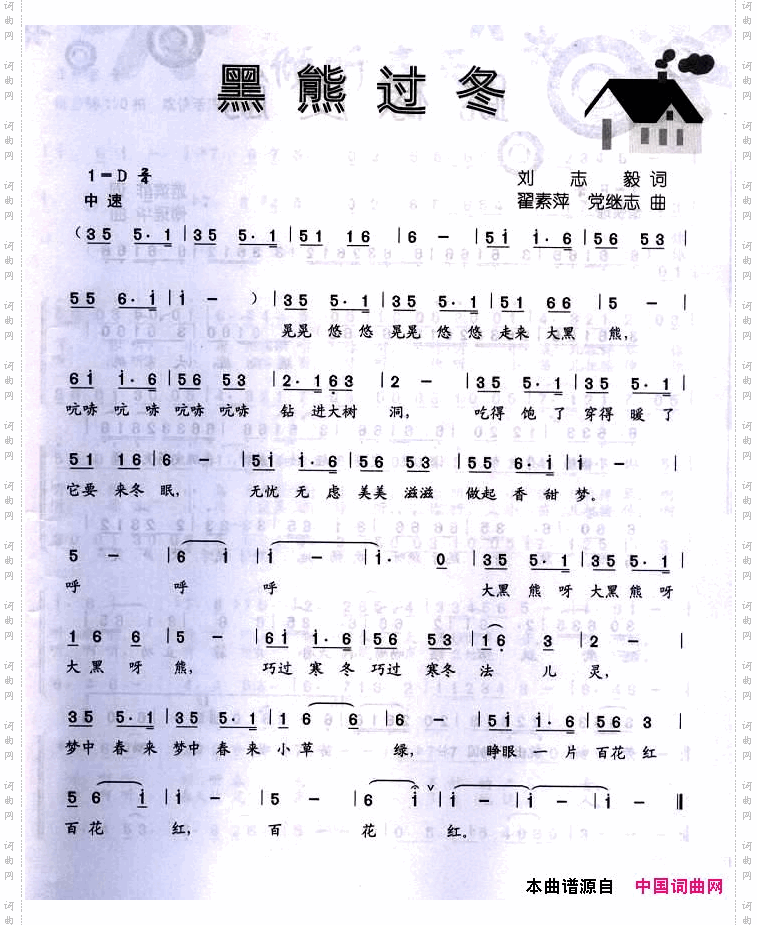 黑熊过冬
1=D 2/4
刘志毅词
中速
翟素萍 党继志 曲
(35 5·1 |35 5·1 |51 16 |6 – |51 i·6 |56 53 |
55 6·i |i – ) |35 5·1 |35 5·1 |51 66 |5 – |
晃晃 悠悠 晃晃 悠悠 走来 大黑 熊,
6i i·6 |56 53 |2·1 63 |2 – |35 5·1 |35 5·1 |
吭哧 吭哧 吭哧 吭哧 钻 进大树 洞, 吃得 饱了 穿得 暖了
51 16 |6 – |5i i·6 |56 53 |55 6·i |i – |
它要 来冬 眠, 无忧 无虑 美美 滋滋 做起 香甜 梦。
5 – |6 i |i – |i· 0 |35 5·1 |35 5·1 |
呼 呼 呼 大黑 熊呀 大黑 熊呀
1 6 6 |5 – |6i i·6 |56 53 |1 6 3 |2 – |
大黑呀 熊, 巧过 寒冬 巧过 寒冬 法 儿 灵,
35 5·1 |35 5·1 |1 6 6 |6 – |5i i·6 |56 3 |
梦中 春来 梦中 春来 小草 绿, 睁眼 一片 百花 红
5 6 i |i – |5 – |6 i |i – |i – ‖
百花 红, 百 花 红。
本曲谱源自 中国词曲网
词曲网